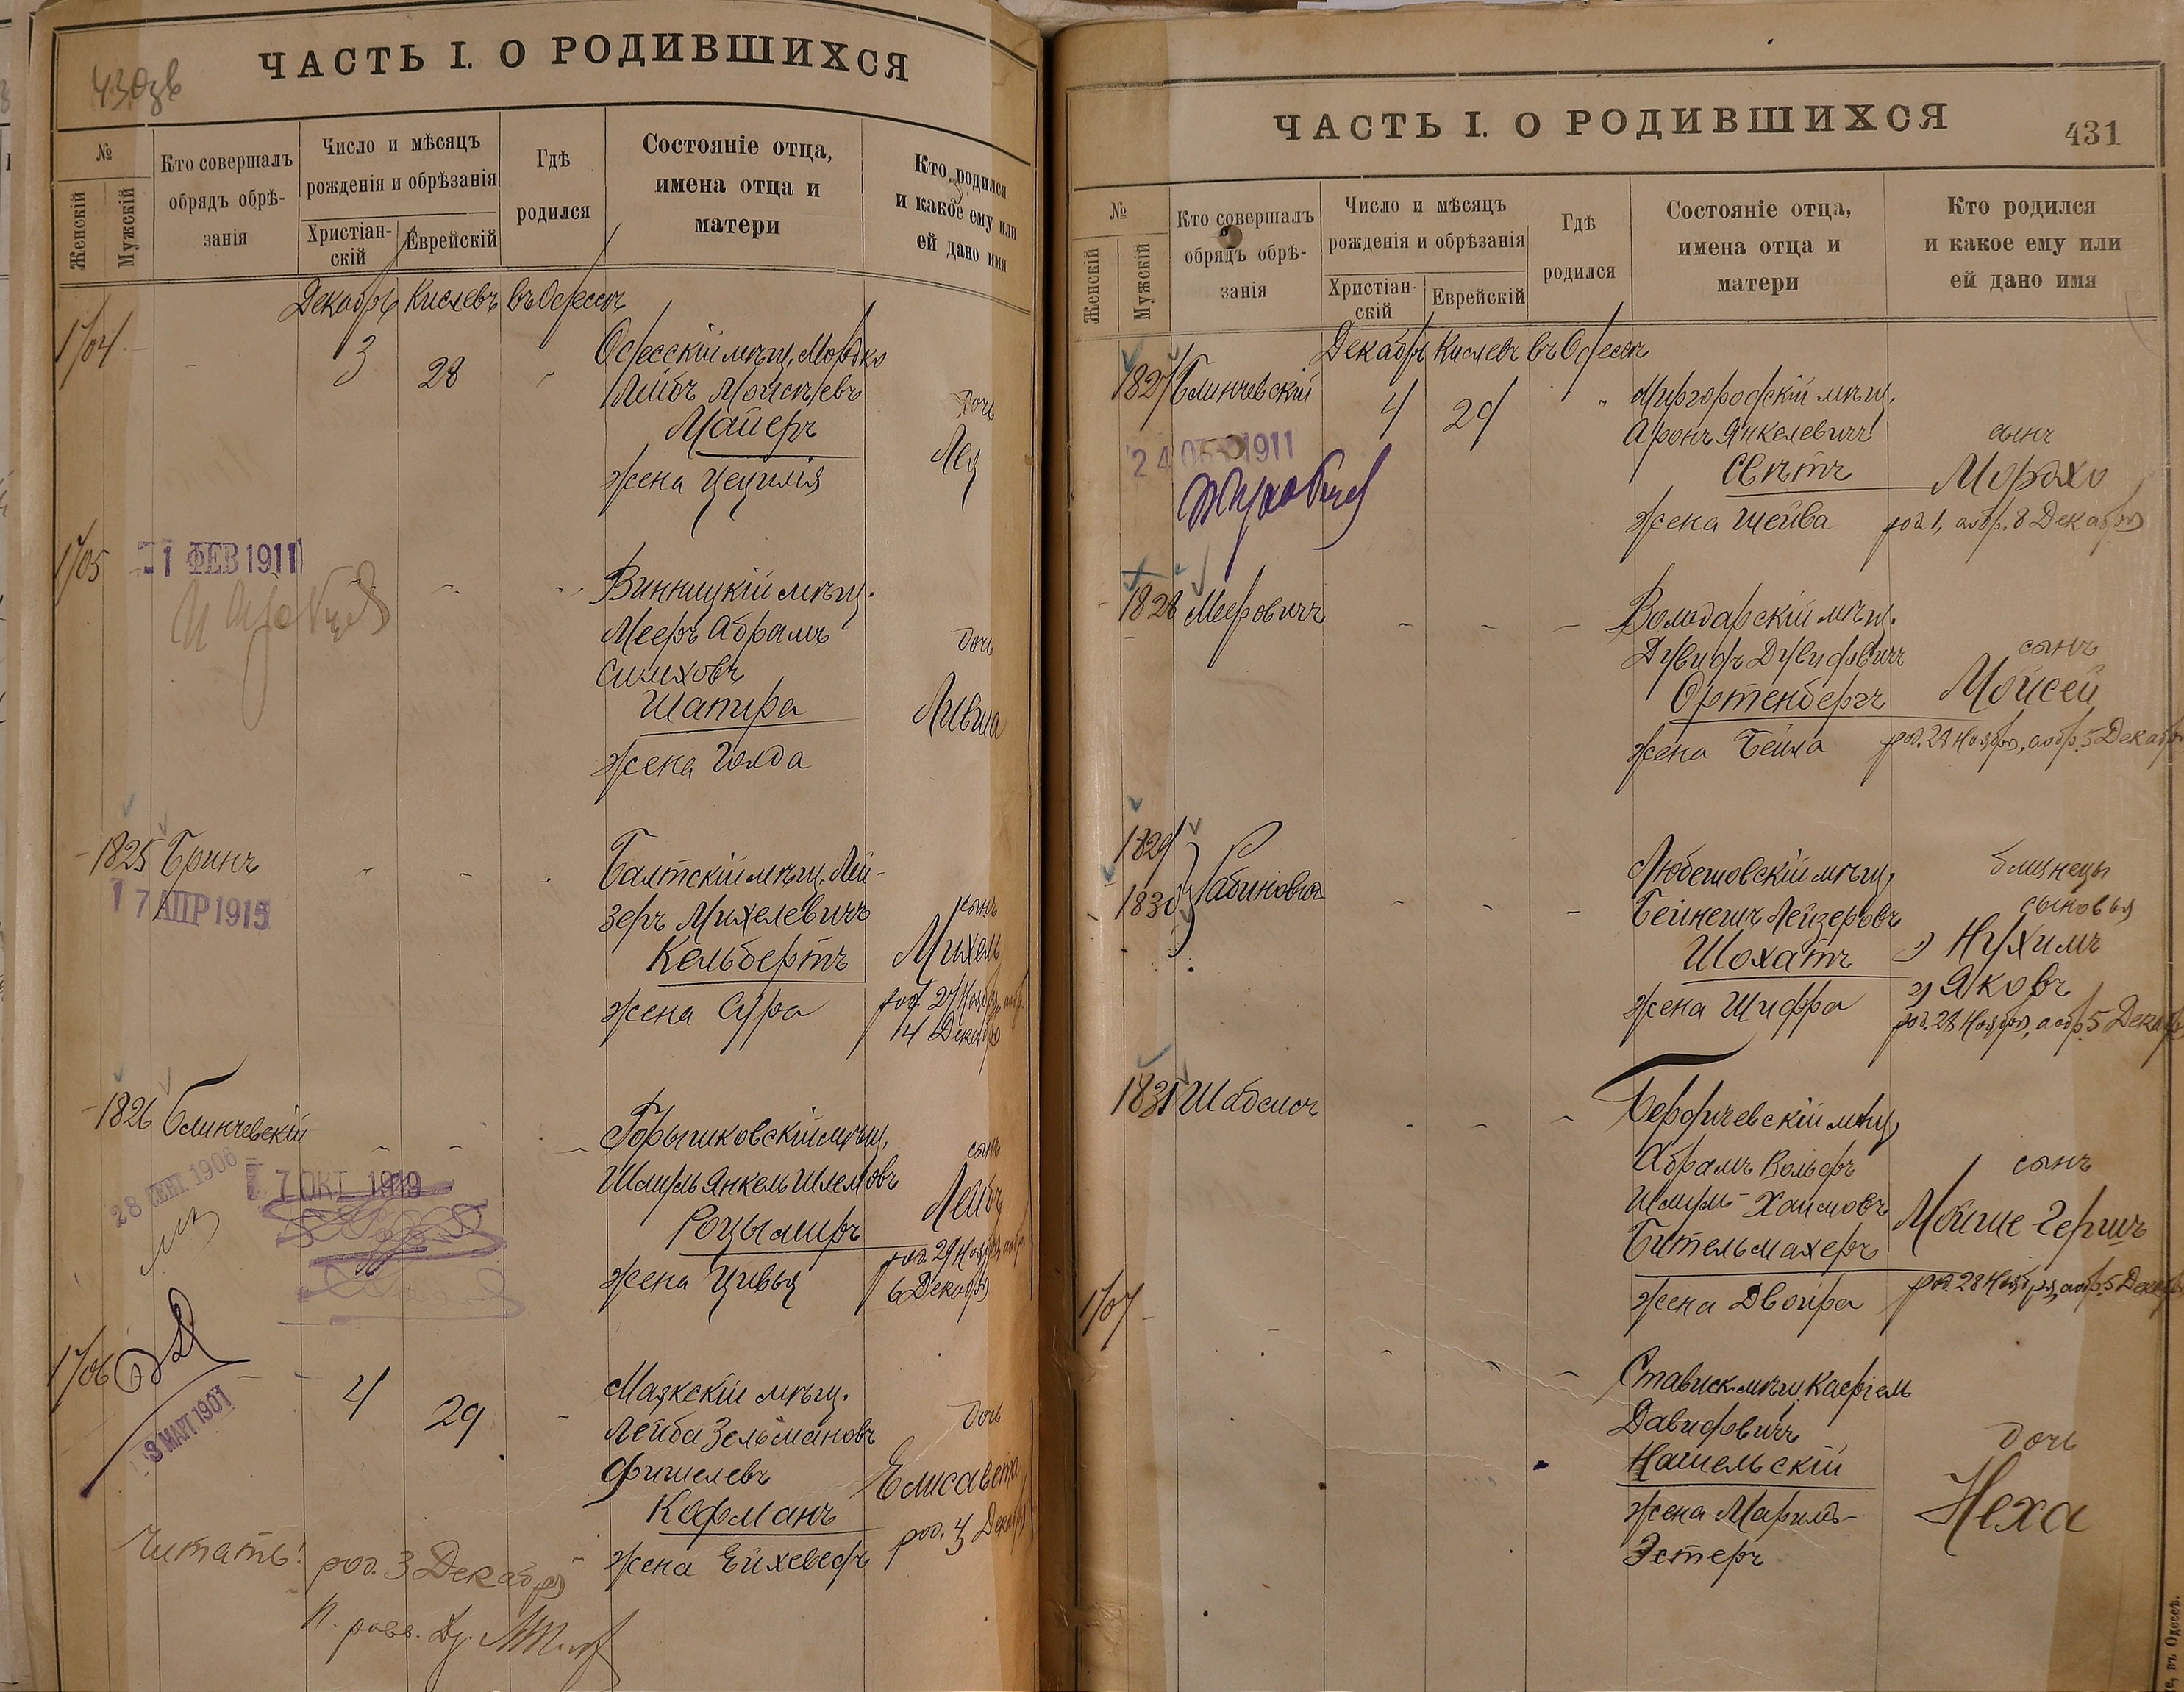 ЧАСТЬ I. О РОДИВШИХСЯ
430
№
Женскій
Мужскій
Кто совершалъ
обрядъ обрѣ-
занія
Число и мѣсяцъ
рожденія и обрѣзанія
Христіан-
скій
Еврейскій
Гдѣ
родился
Состояніе отца,
имена отца и
матери
Кто родился
и какое ему или
ей дано имя
Декабрь Кислевъ въ Одессѣ
1704
3
28
Одесскій мѣщ. Мордко
Лейбъ Мойсѣевъ
Майеръ
жена Цецилія
дочь
Лея
1705
21 ФЕВ 1911
Винницкій мѣщ.
Мееръ Абрамъ
Симховъ
Шапира
жена Голда
дочь
1825
Бринъ
17 АПР 1915
Балтскій мѣщ. Лей-
зеръ Михелевичъ
Кельбертъ
жена Сура
сынъ
Михель
род. 27 Ноября, обр.
14 Декабря
1826
Блинчевскій
28 СЕНТ 1906
7 ОКТ 1919
Горышковскій мѣщ.
Шмуль Янкель Шлемовъ
Роцымиръ
жена Цивья
сынъ
Лейбъ
род. 29 Ноября, обр.
6 Декабря
1706
3 МАРТ 1907
4
29
Маякскій мѣщ.
Лейба Зельмановъ
Фишелевъ
Кофманъ
жена Ейхеведъ
дочь
Елисавета
род. Декабря
Читать! род. 3 Декабря
ЧАСТЬ I. О РОДИВШИХСЯ
431
№
Женскій
Мужскій
Кто совершалъ
обрядъ обрѣ-
занія
Число и мѣсяцъ
рожденія и обрѣзанія
Христіан-
скій
Еврейскій
Гдѣ
родился
Состояніе отца,
имена отца и
матери
Кто родился
и какое ему или
ей дано имя
Декабрь Кислевъ въ Одессѣ
1827
Блинчевскій
4
29
24 1911
Миргородскій мѣщ.
Аронъ Янкелевичъ
Свѣтъ
жена Шейва
сынъ
Мордхо
род. 1, обр. 8 Декабря
1828
Мееровичъ
Володарскій мѣщ.
Дувидъ Дувидовичъ
Ортенбергъ
жена Бейла
сынъ
Мойсей
род. 28 Ноября, обр. 5 Декабря
1829
1830
Рабиновичъ
Любешовскій мѣщ.
Бейнешъ Лейзеровъ
Шохатъ
жена Шифра
близнецы
сыновья
1) Нухимъ
2) Яковъ
род. 28 Ноября, обр. 5 Декабря
1831
Шабсисъ
Бердичевскій мѣщ.
Абрамъ Вольфъ
Шмуль-Хаимовъ
Бительмахеръ
жена Двойра
сынъ
Мойше-Гершъ
род. 28 Ноября, обр. 5 Декабря
1707
Стависк. мѣщ. Кадріель
Давидовичъ
Нашельскій
жена Марилъ-
Эстеръ
дочь
Неха